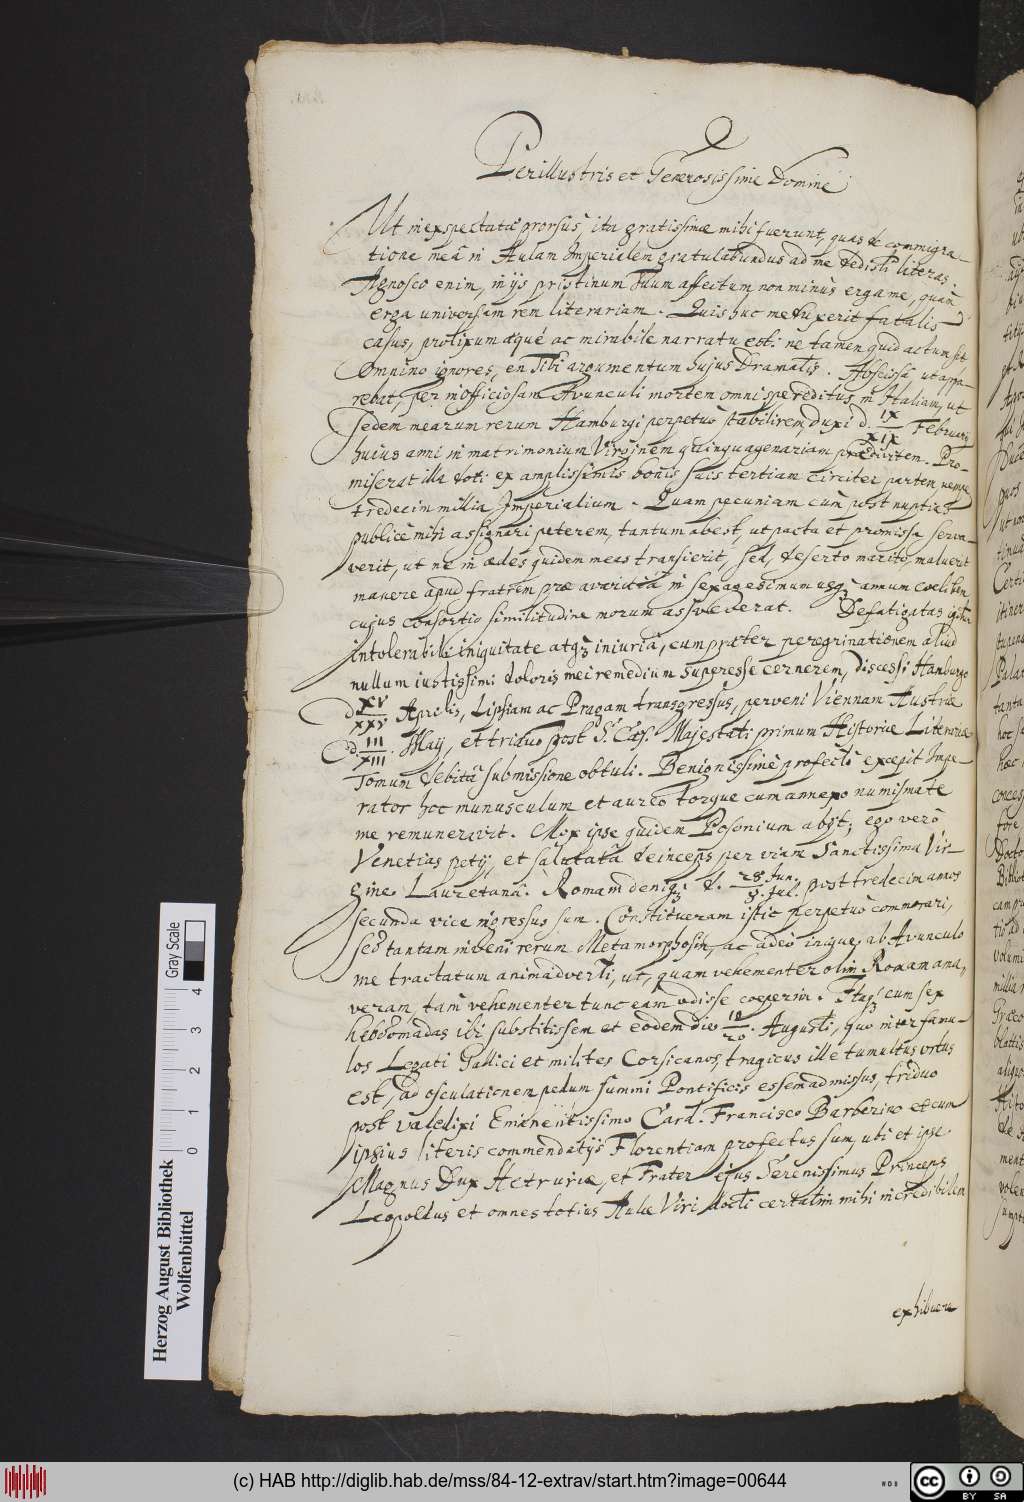 Perillustris et Generosissime Domine
Ut inexspectatae prorsus, ita gratissimae mihi fuerunt, quas de commigra-
tione meâ in Aulam Imperialem gratulabundus ad me dedisti literas.
Agnosco enim, in ijs pristinum Tuum affectum non minùs erga me, quàm
erga universam rem literariam. Quis huc me duxerit fatalis
casus, prolixum aequè ac mirabile narratu est: ne tamen quid actum sit
omnino ignores, en Tibi argumentum hujus Dramatis. Abscissâ, ut appa-
rebat, per inofficiosam Avunculi mortem omni spe reditus in Italiam, ut
Sedem mearum rerum Hamburgi perpetuò stabilirem, duxi d. IX/XIX Februarij
huius anni in matrimonium Virginem quinquagenariam praedivitem. Pro-
miserat illa doti ex amplissimis bonis suis tertiam circiter partem nempe
tredecim millia Imperialium. Quam pecuniam cùm post nuptias
publicè mihi assignari peterem, tantum abest, ut pacta et promissa serva-
verit, ut ne in aedes quidem meas transierit, sed, deserto marito, maluerit
manere apud fratrem prae avaritiâ in sexagesimum usq; annum coelibem
cujus consortio similitudine morum assueverat. Defatigatus igitur
intolerabili iniquitate atq; iniuriâ, cum praeter peregrinationem aliud
nullum iustissimi doloris mei remedium superesse cernerem, discessi Hamburgo
d. XV/XXV Aprilis, Lipsiam ac Pragam transgressus, perveni Viennam Austriae
d. III/XIII. Maij, et triduo post S. Caes. Majestati primum Historiae Literariae
Tomum debitâ submissione obtuli. Benignissimè profectò excepit Impe-
rator hoc munusculum et aureo torque cum annexo numismate
me remuneravit. Mox ipse quidem Posonium abijt; ego verò
Venetias petij, et salutatâ deinceps per viam Sanctissimâ Vir-
gine Lauretanâ. Romam deniq; d. 28 Jun./8. Jul. post tredecim annos
secunda vice ingressus sum. Constitueram istic perpetuò commorari,
sed tantam inveni rerum Metamorphosin, ac adeò iniquè ab Avunculo
me tractatum animadverti, ut, quam vehementer olim Romam ama-
veram, tam vehementer tunc eam odisse coeperim. Itaq; cum sex
hebdomadas ibi substitissem et eodem die 10/20. Augusti, quo inter famu-
los Legati Gallici et milites Corsicanos, tragicus ille tumultus ortus
est, ad osculationem pedum summi Pontificis essem admissus, triduo
post valedixi Eminentissimo Card. Francisco Barberino et cum
ipsius literis commendatijs Florentiam profectus sum, ubi et ipse
Magnus Dux Hetruriae, et Frater ejus Serenissimus Princeps
Leopoldus et omnes totius Aulae Viri docti certatim mihi incredibilem
exhibuere
Herzog August Bibliothek
Wolfenbüttel
0 1 2 3 4
Gray Scale
(c) HAB http://diglib.hab.de/mss/84-12-extrav/start.htm?image=00644
cc BY SA